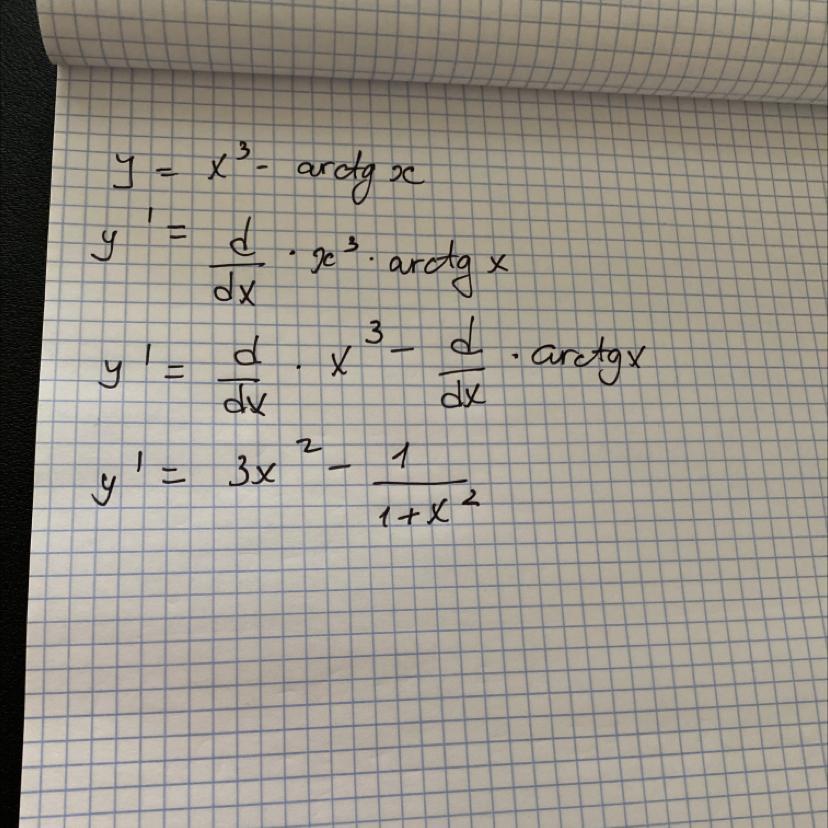 y = x³ - arctg x
y' = d/dx · x³ · arctg x
y' = d/dx · x³ - d/dx · arctg x
y' = 3x² - 1/(1+x²)